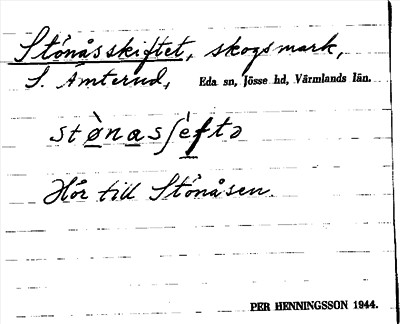 Stönåsskiftet, skogsmark,
S. Åmterud, Eda sn, Jösse hd, Värmlands län.
stø̀nasʃèftə
Hör till Stönåsen.
PER HENNINGSSON 1944.